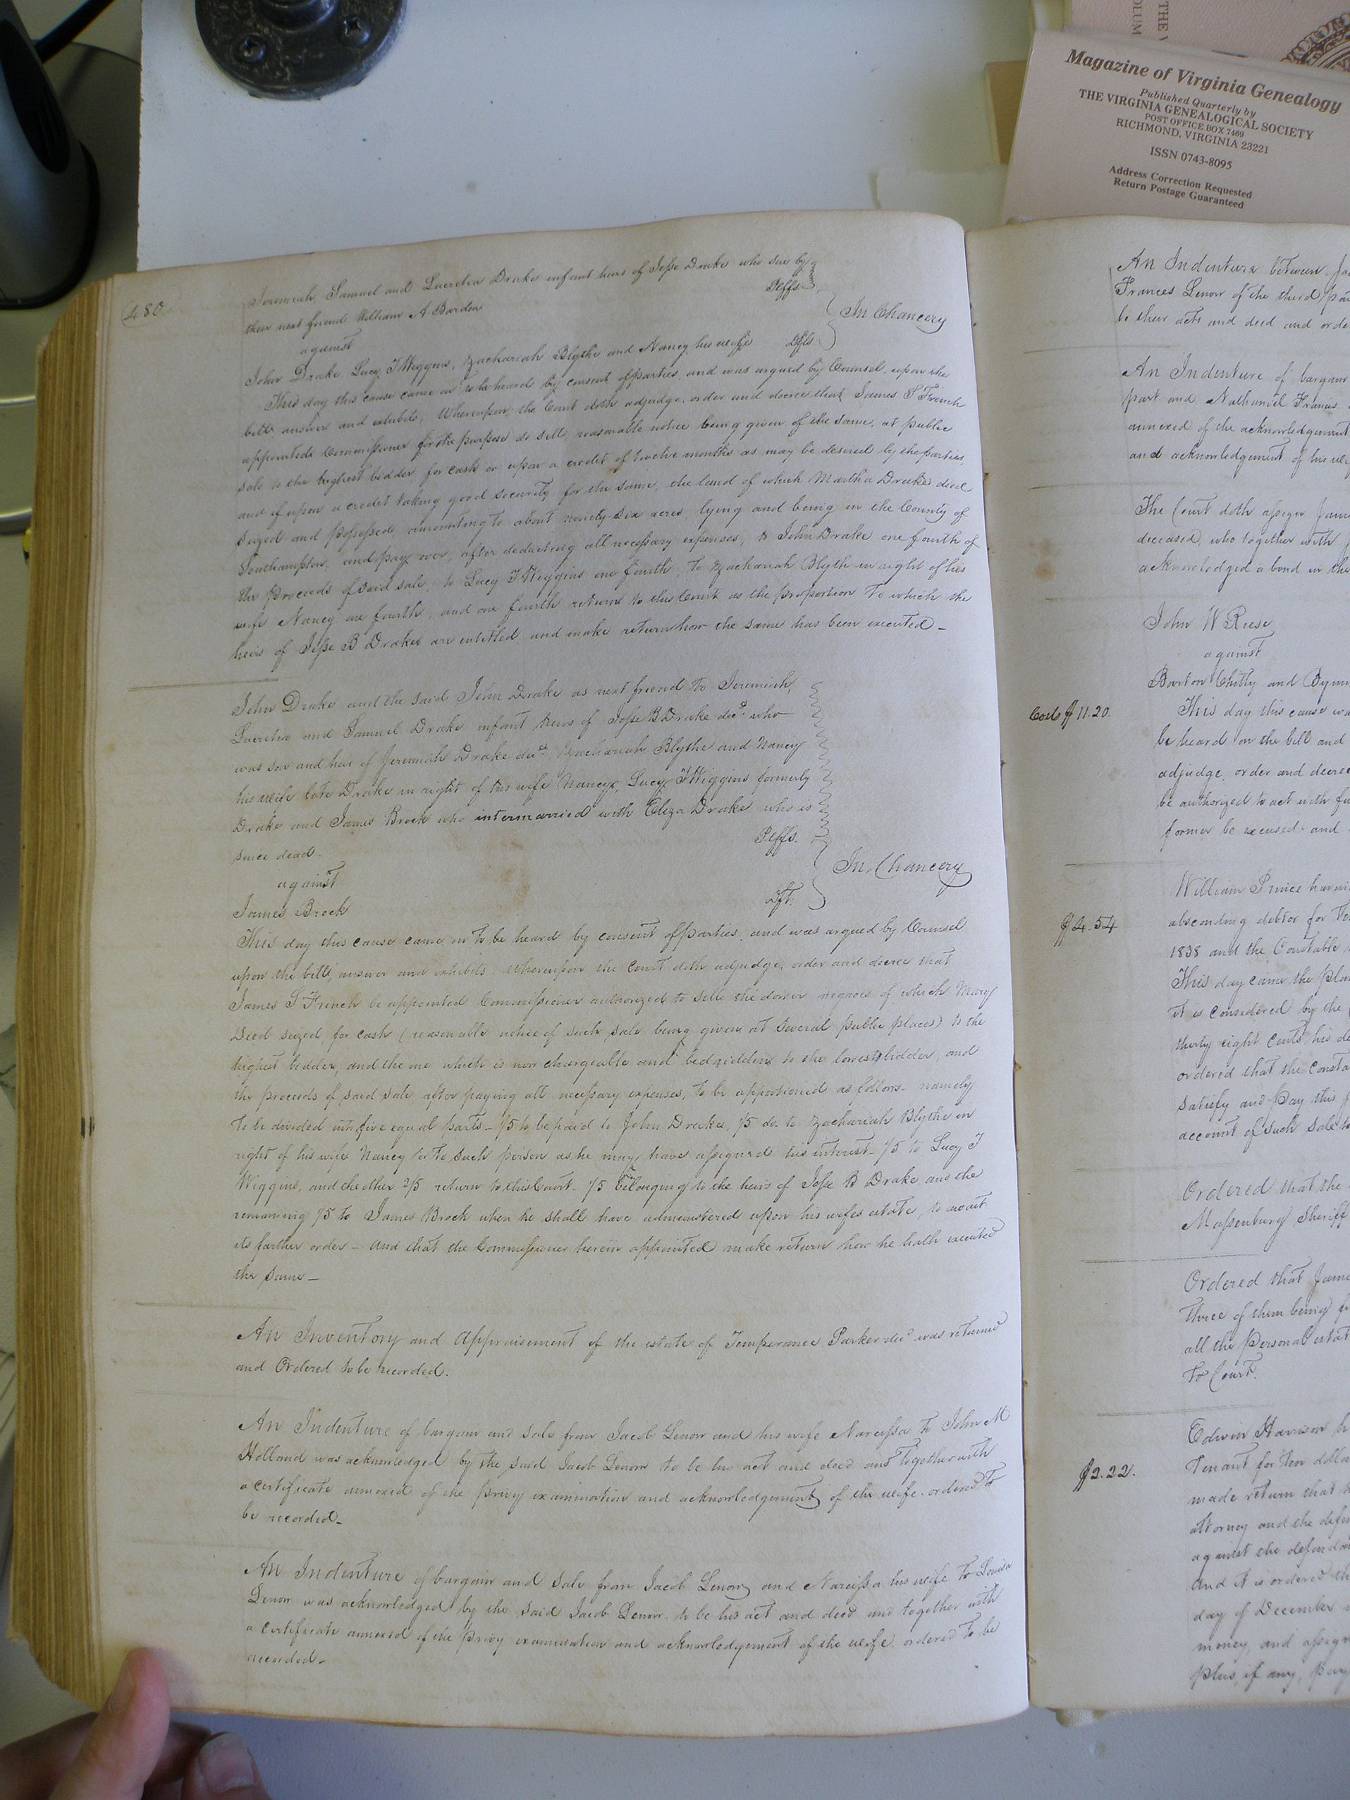 THE V
OLUM
Magazine of Virginia Genealogy
Published Quarterly by
THE VIRGINIA GENEALOGICAL SOCIETY
POST OFFICE BOX 7469
RICHMOND, VIRGINIA 23221
ISSN 0743-8095
Address Correction Requested
Return Postage Guaranteed
480
Jeremiah, Samuel and Lucretia Drake infant heirs of Jesse Drake who sue by
their next friend William A Barden Plffs
against In Chancery
John Drake, Lucy T Wiggins, Zachariah Blythe and Nancy his wife Dfts
This day this cause came on to be heard by consent of parties, and was argued by Counsel, upon the
bill answer and exhibits, Whereupon the Court doth adjudge, order and decree that James S French
appointed Commissioner for the purpose do sell, reasonable notice being given of the same, at public
sale to the highest bidder for cash or upon a credit of twelve months as may be desired by the parties,
and if upon a credit taking good security for the same, the land of which Martha Drake died
seized and possessed, amounting to about ninety six acres lying and being in the County of
Southampton, and pay over, after deducting all necessary expenses, to John Drake one fourth of
the proceeds of said sale, to Lucy T Wiggins one fourth, to Zachariah Blyth in right of his
wife Nancy one fourth, and one fourth return to this Court as the proportion to which the
heirs of Jesse B Drake are entitled and make return how the same has been executed -
John Drake and the said John Drake as next friend to Jeremiah,
Lucretia and Samuel Drake infant heirs of Jesse B Drake decd who
was son and heir of Jeremiah Drake decd, Zachariah Blythe and Nancy
his wife late Drake in right of his wife Nancy, Lucy T Wiggins formerly
Drake and James Brock who intermarried with Eliza Drake who is
since dead - Plffs.
against In Chancery
James Brock Dft.
This day this cause came on to be heard by consent of parties, and was argued by Counsel
upon the bill, answer and exhibits. Whereupon the Court doth adjudge, order and decree that
James S French be appointed Commissioner authorized to sell the dower negroes of which Mary
died seized for cash (reasonable notice of such sale being given at several public places) to the
highest bidder, and the one which is now chargeable and bedridden to the lowest bidder, and
the proceeds of said sale after paying all necessary expenses, to be apportioned as follows - namely
to be divided into five equal parts - 1/5 to be paid to John Drake, 1/5 do. to Zachariah Blythe in
right of his wife Nancy or to such person as he may have assigned his interest - 1/5 to Lucy T
Wiggins, and the other 2/5 return to this Court - 1/5 belonging to the heirs of Jesse B Drake and the
remaining 1/5 to James Brock when he shall have administered upon his wifes estate, to await
its farther order - And that the Commissioner herein appointed make return how he hath executed
the same -
An Inventory and Appraisement of the estate of Temperance Parker decd was returned
and Ordered to be recorded.
An Indenture of bargain and sale from Jacob Lenow and his wife Narcissa to John M
Holland was acknowledged by the said Jacob Lenow to be his act and deed and together with
a certificate annexed of the privy examination and acknowledgement of the wife ordered to
be recorded -
An Indenture of bargain and sale from Jacob Lenow and Narcissa his wife to Louisa
Lenow was acknowledged by the said Jacob Lenow to be his act and deed and together with
a certificate annexed of the privy examination and acknowledgement of the wife ordered to be
recorded -
An Indenture between
Frances Lenow of the third pa
be their acts and deed and orde
An Indenture of bargain
part and Nathaniel Francis
annexed of the acknowledgement
and acknowledgement of his
The Court doth assign Jam
deceased, who together with
acknowledged a bond in the
John W Reese
against
Costs $11.20. Barton Chitty and
This day this cause
be heard on the bill and
adjudge, order and decree
be authorized to act with fu
former be excused and
William Prince havin
$4.54 absconding debtor for
1838 and the Constable
This day came the Pla
it is considered by the
thirty eight cents his de
ordered that the Consta
satisfy and pay this
account of such sale to
Ordered that the
Massenburg Sheriff
Ordered that Jame
three of them being
all the personal estat
to Court.
Edwin Harrison
$2.22. Tenant for Ten dolla
made return that
attorney and the defe
against the defenda
and it is ordered th
day of December
money, and assign
plus, if any, pay